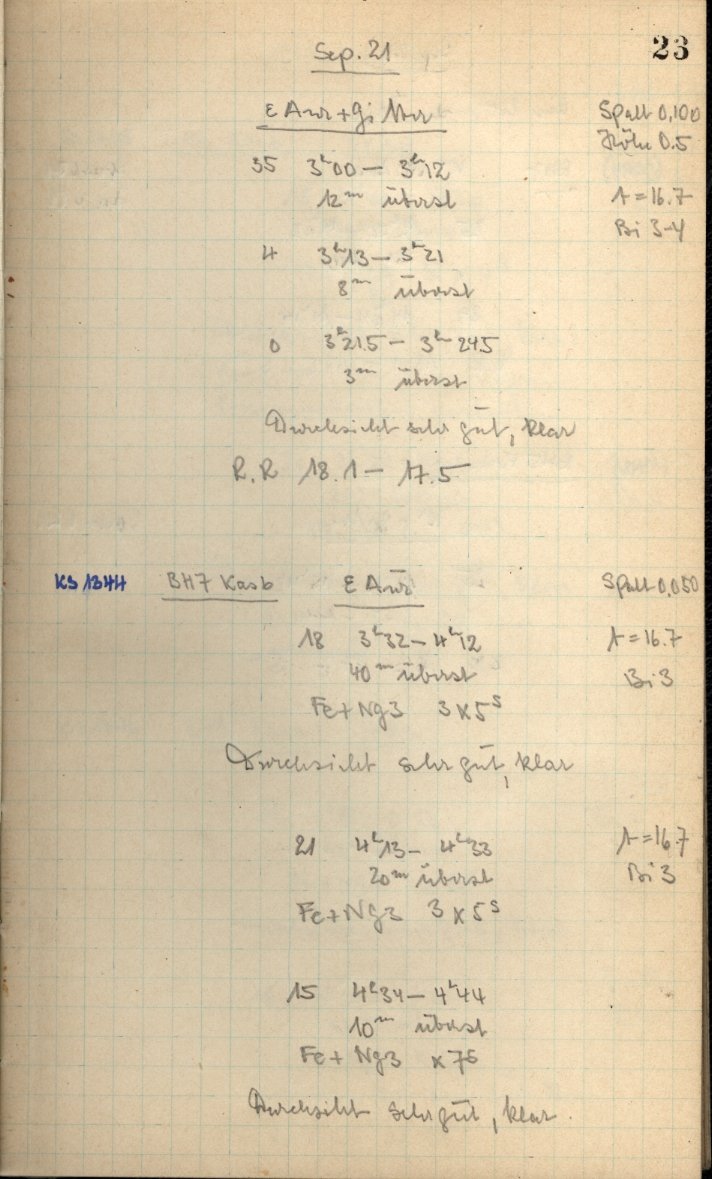 23
Sep. 21
ε Aur + Gitter Spalt 0,100
Höhe 0.5
35 3ʰ00 – 3ʰ12
12ᵐ überst A = 16.7
Bi 3-4
4 3ʰ13 – 3ʰ21
8ᵐ überst
0 3ʰ21.5 – 3ʰ24.5
3ᵐ überst
Durchsicht sehr gut, klar
R.R 18.1 – 17.5
KS 1344 BH7 Kasb ε Aur Spalt 0,050
18 3ʰ32 – 4ʰ12 A = 16.7
40ᵐ überst Bi 3
Fe + Ng3 3 x 5ˢ
Durchsicht sehr gut, klar
21 4ʰ13 – 4ʰ33 A = 16.7
20ᵐ überst Bi 3
Fe + Ng3 3 x 5ˢ
15 4ʰ34 – 4ʰ44
10ᵐ überst
Fe + Ng3 x 7ˢ
Durchsicht sehr gut, klar.